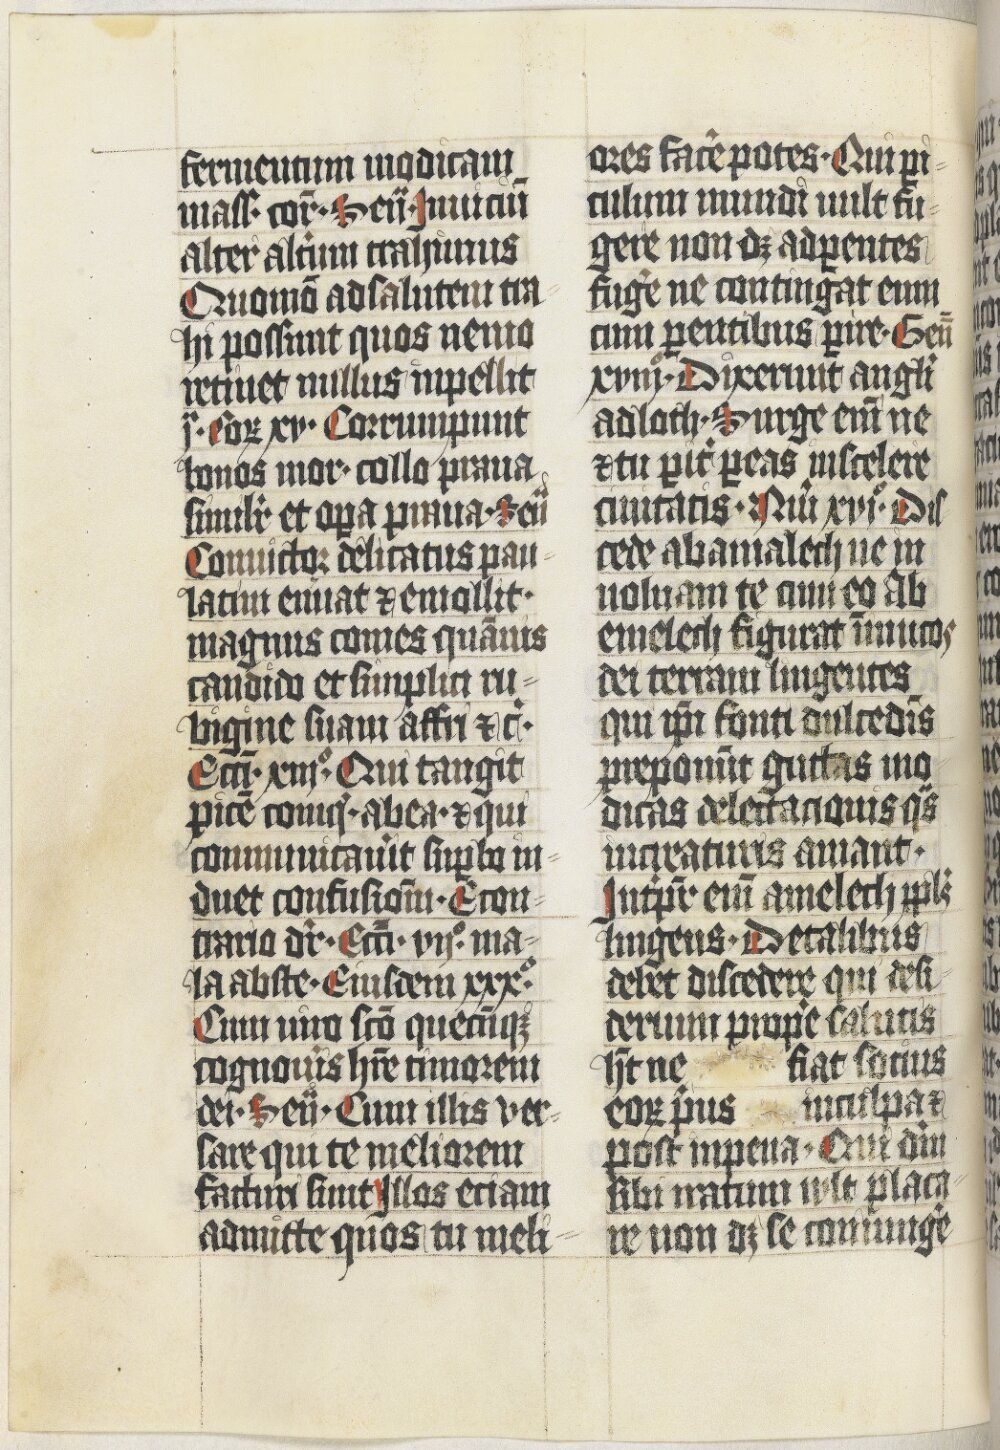 fermentum modicam
mass· cor̄· Seň· Inuicuī
alter alt'um trahimus
Quomō ad salutem tra=
hi possunt quos nemo
retinet nullus inpellit
j· Coꝝ xv· Corrumpunt
bonos mor· collo praua
simil'r et opa praua· Seň
Conuictor delicatus pau=
latim eniuat ⁊ emollit·
magnus comes quāuis
candido et simplici ru=
bigine suam affri ⁊ c̄·
Eccī· xiijº· Qui tangit
picē coniq̄· ab ea· ⁊ qui
communicau'it sup̄bo in=
duet confusiom̄· Econ=
trario dr̄· Eccī· vijº· ma=
la abste· Eiusdem xxxº·
Cum uiro scō quecūqꝫ
cognou'is hr̄e timorem
dei· Seň· Cum illis ver=
sare qui te meliorem
facturi sunt Illos eciam
admitte quos tu meli=
ores fac'e potes· Qui pi=
culum mundi uult fu=
gere non dꝫ ad ꝑeuntes
fug'e ne contingat eum
cum ꝑeuntibus ꝑire· Gen̄
xviiijº· Dixerunt angl'i
ad loth· Surge eni ne
⁊ tu pit' ꝑeas in scelere
ciuitatis· Nūi xviº· Dis
cede ab amalech ne in
uoluam te cum eo Ab
emelech figurat īnimicos
dei terram lingentes
qui ip̄i fonti dulcedis
preponūt guttas mo
dicas delectacionis q̄s
in creaturis amant·
Int'pr̄ eni amelech ppl's
lingens· De talibus
debet discedere qui desi=
derium prop'e salutis
ht̄ ne fiat socius
eoꝝ p̄us in culpa ⁊
post in pena· Qui dm̄
sibi iratum wlt placa=
re non dꝫ se coniung'e